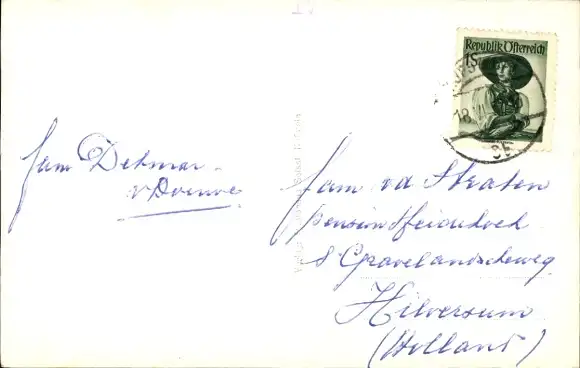 Republik Österreich
1S
18. VII
fam Detmar -
v Douwe
fam vd Straten
pension Heidehoek
s' Gravelandscheweg
Hilversum
(Holland)